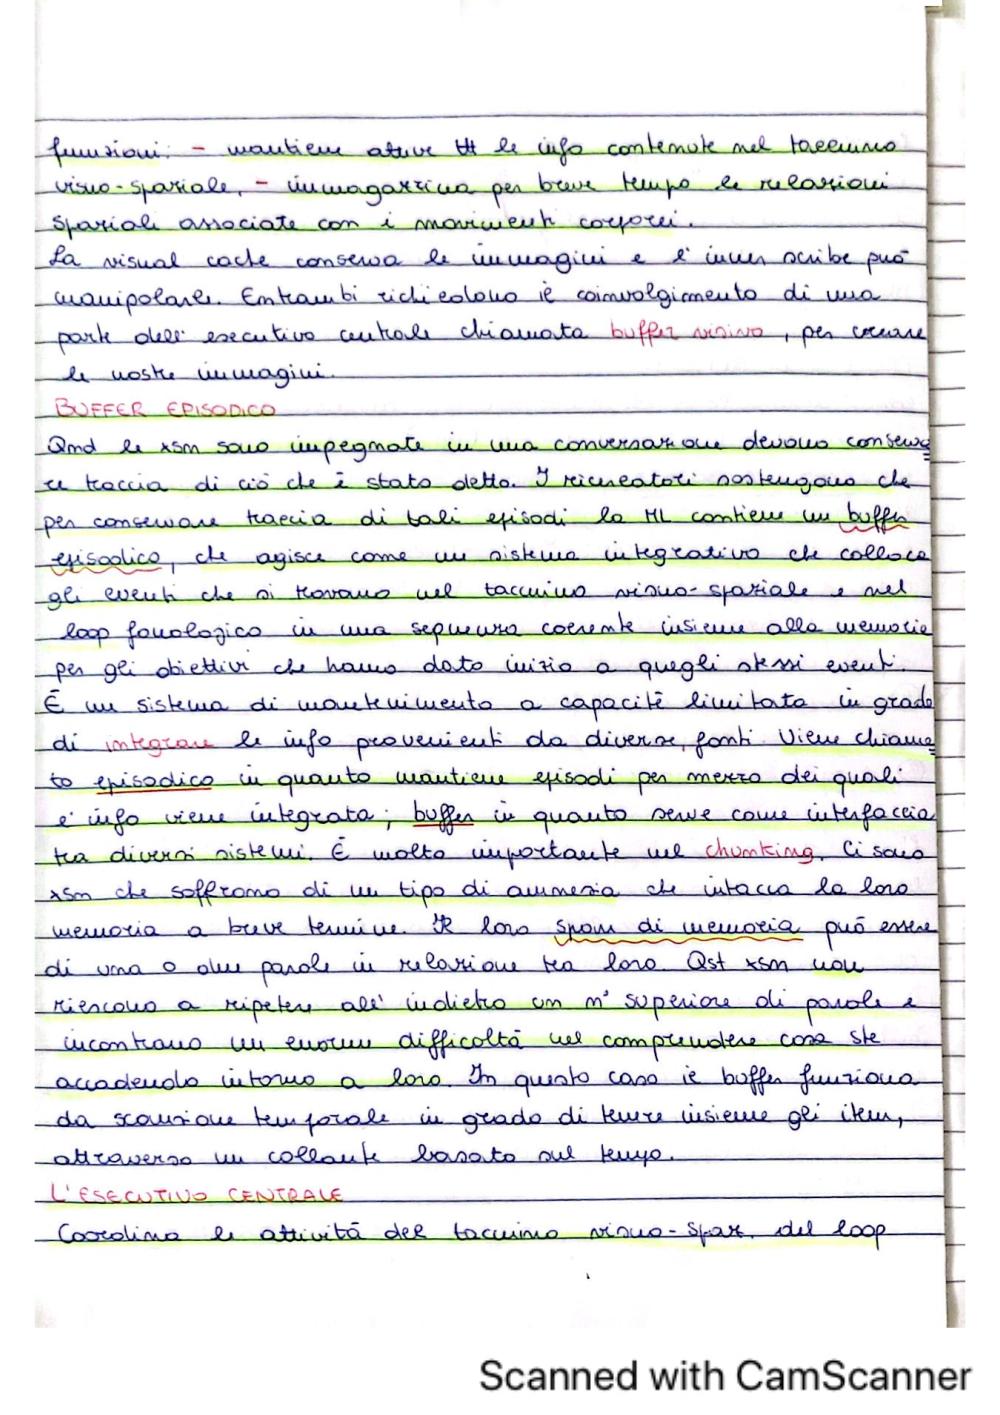 funzioni: - mantiene attive tt le info contenute nel taccuino
visuo-spaziale, - immagazzina per breve tempo le relazioni
spaziali associate con i movimenti corporei.
La visual cache conserva le immagini e l'inner scribe può
manipolarle. Entrambi richiedono il coinvolgimento di una
parte dell'esecutivo centrale chiamata buffer visivo, per creare
le nostre immagini.
BUFFER EPISODICO
Qnd le xsn sono impegnate in una conversazione devono conserva
re traccia di ciò che è stato detto. I ricercatori sostengono che
per conservare traccia di tali episodi la ML contiene un buffer
episodico, che agisce come un sistema integrativo che colloca
gli eventi che si trovano nel taccuino visuo-spaziale e nel
loop fonologico in una sequenza coerente insieme alla memoria
per gli obiettivi che hanno dato inizio a quegli stessi eventi.
È un sistema di mantenimento a capacità limitata in grado
di integrare le info provenienti da diverse fonti. Viene chiama
to episodico in quanto mantiene episodi per mezzo dei quali
l'info viene integrata; buffer in quanto serve come interfaccia
tra diversi sistemi. È molto importante nel chunking. Ci sono
xsn che soffrono di un tipo di amnesia che intacca la loro
memoria a breve termine. Il loro span di memoria può essere
di una o due parole in relazione tra loro. Qst xsn non
riescono a ripetere all'indietro un n° superiore di parole e
incontrano un enorme difficoltà nel comprendere cosa sta
accadendo intorno a loro. In questo caso il buffer funziona
da scansione temporale in grado di tenere insieme gli item,
attraverso un collante basato sul tempo.
L'ESECUTIVO CENTRALE
Coordina le attività del taccuino visuo-spaz. del loop
Scanned with CamScanner